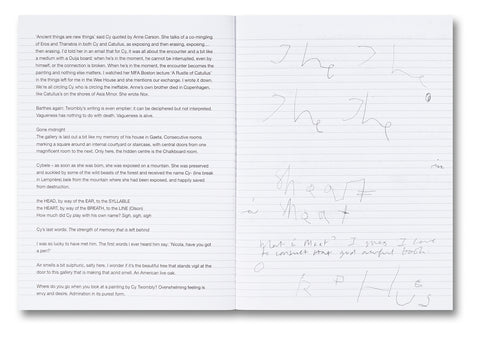 'Ancient things are new things' said Cy quoted by Anne Carson. She talks of a co-mingling
of Eros and Thanatos in both Cy and Catullus, as exposing and then erasing, exposing....
then erasing. I'd told her in an email that for Cy, it was all about the encounter and a bit like
a medium with a Ouija board: when he's in the moment, he cannot be interrupted, even by
himself, or the connection is broken. When he's in the moment, the encounter becomes the
painting and nothing else matters. I watched her MFA Boston lecture 'A Rustle of Catullus'
in the things left for me in the Wee House and she mentions our exchange. I wrote it down.
We're all circling Cy who is circling the ineffable. Anne's own brother died in Copenhagen,
like Catullus's on the shores of Asia Minor. She wrote Nox.
Barthes again: Twombly's writing is even emptier: it can be deciphered but not interpreted.
Vagueness has nothing to do with death. Vagueness is alive.
Gone midnight
The gallery is laid out a bit like my memory of his house in Gaeta. Consecutive rooms
marking a square around an internal courtyard or staircase, with central doors from one
magnificent room to the next. Only here, the hidden centre is the Chalkboard room.
Cybele – as soon as she was born, she was exposed on a mountain. She was preserved
and suckled by some of the wild beasts of the forest and received the name Cy- (line break
in Lemprière) bele from the mountain where she had been exposed, and happily saved
from destruction.
the HEAD, by way of the EAR, to the SYLLABLE
the HEART, by way of the BREATH, to the LINE (Olson)
How much did Cy play with his own name? Sigh, sigh, sigh
Cy's last words: The strength of memory that is left behind
I was so lucky to have met him. The first words I ever heard him say: 'Nicola, have you got
a pen?'
Air smells a bit sulphuric, salty here. I wonder if it's the beautiful tree that stands vigil at the
door to this gallery that is making that acrid smell. An American live oak.
Where do you go when you look at a painting by Cy Twombly? Overwhelming feeling is
envy and desire. Admiration in its purest form.
The The
The The
in
heat
What is Meat? I guess I have
to consult that god awful